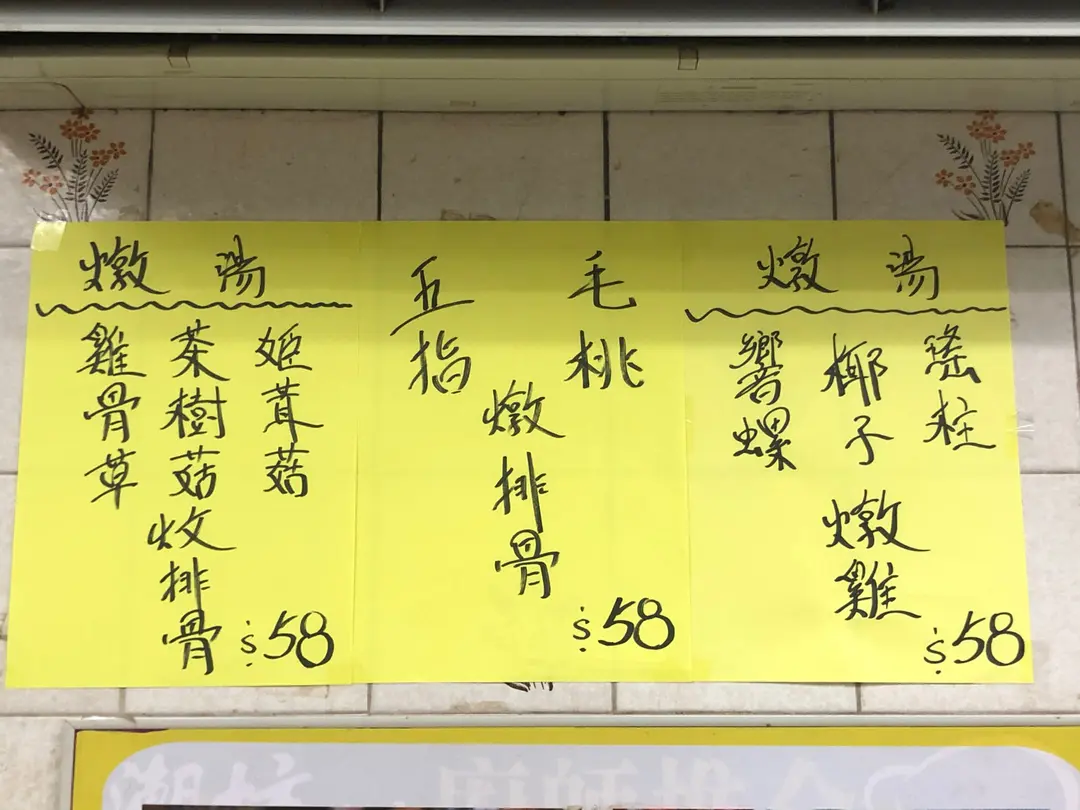 燉湯
雞骨草
茶樹菇
姬茸菇
炆排骨
$58
五指
毛桃
燉排骨
$58
燉湯
響螺
椰子
瑤柱
燉雞
$58